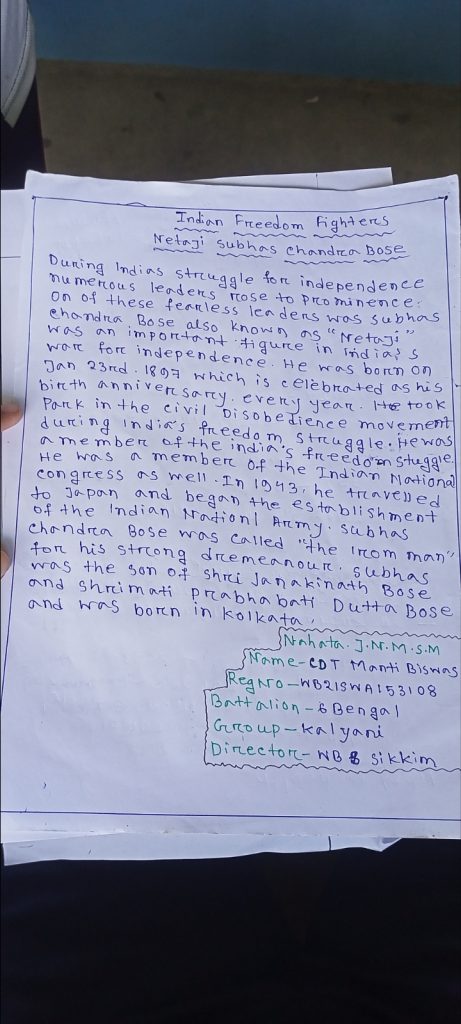 Indian Freedom Fighters
Netaji subhas chandra Bose
During Indias struggle for independence
numerous leaders rose to prominence.
On of these fearless leaders was subhas
chandra Bose also known as "Netaji"
was an important figure in india's
war for independence. He was born on
Jan 23rd. 1897 which is celebrated as his
birth anniversary. every year. He took
Park in the civil Disobedience movement
during india's freedom struggle. He was
a member of the india's freedom stuggle.
He was a member of the Indian National
congress as well. In 1943, he travelled
to Japan and began the establishment
of the Indian Nationl Army. subhas
chandra Bose was called "the Irom man"
for his strong dremeanour. subhas
was the son of shri Janakinath Bose
and shrimati prabhabati Dutta Bose
and was born in Kolkata.
Nahata. J.N.M.S.M
Name-CDT Manti Biswas
Reg No-WB21SWA153108
Battalion-6 Bengal
Group-Kalyani
Director-WB & sikkim